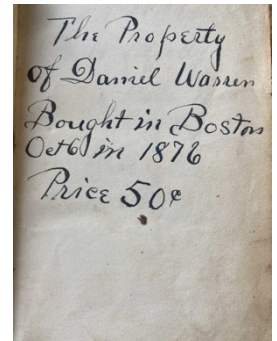 The Property
of Daniel Warren
Bought in Boston
Oct 6 in 1876
Price 50¢